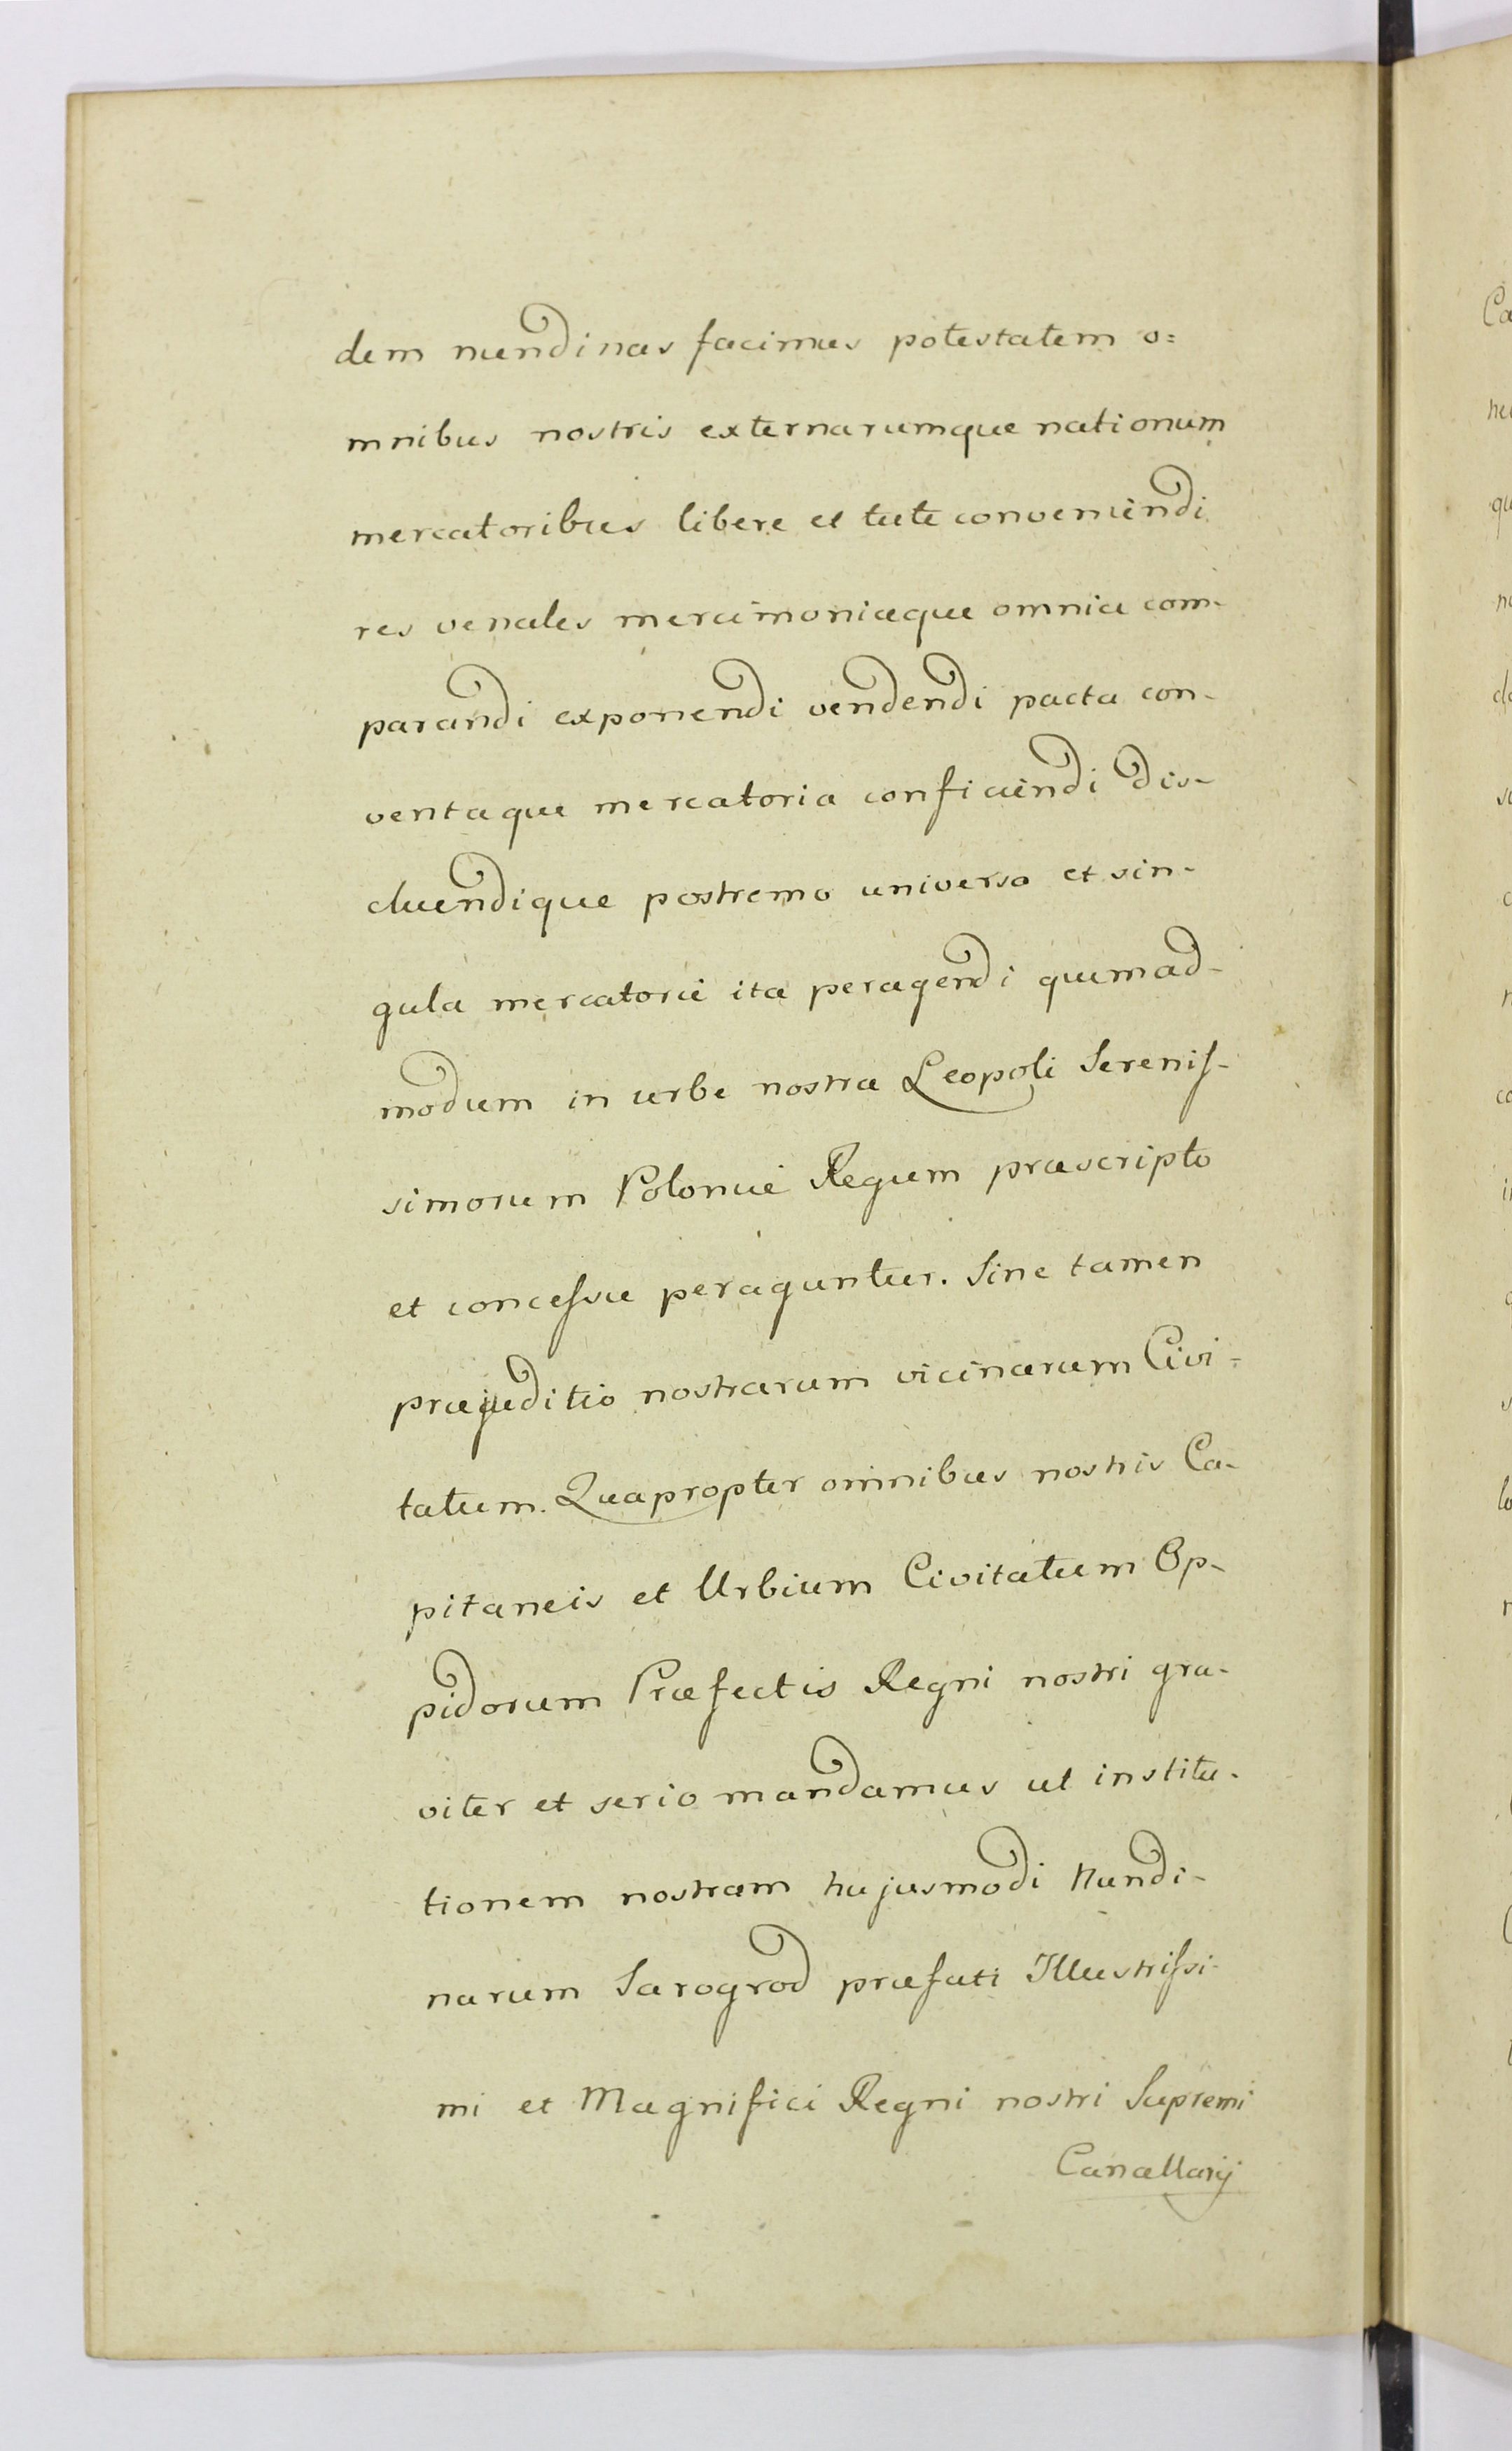 dem nundinas facimus potestatem o=
mnibus nostris externarumque nationum
mercatoribus libere et tute conveniendi
res venales mercimoniaque omnia com-
parandi exponendi vendendi pacta con-
ventaque mercatoria conficiendi dis-
cluendique postremo universa et sin-
gula mercatorie ita peragendi quemad-
modum in urbe nostra Leopoli Serenis-
simorum Poloniae Regum praescripto
et concessu peraguntur. Sine tamen
praejuditio nostrarum vicinarum Civi=
tatum. Quapropter omnibus nostris Ca-
pitaneis et Urbium Civitatum Op-
pidorum Praefectis Regni nostri gra-
viter et serio mandamus ut institu-
tionem nostram hujusmodi Nundi-
narum Sarogrod praefati Illustrissi-
mi et Magnifici Regni nostri Supremi
Cancellarij